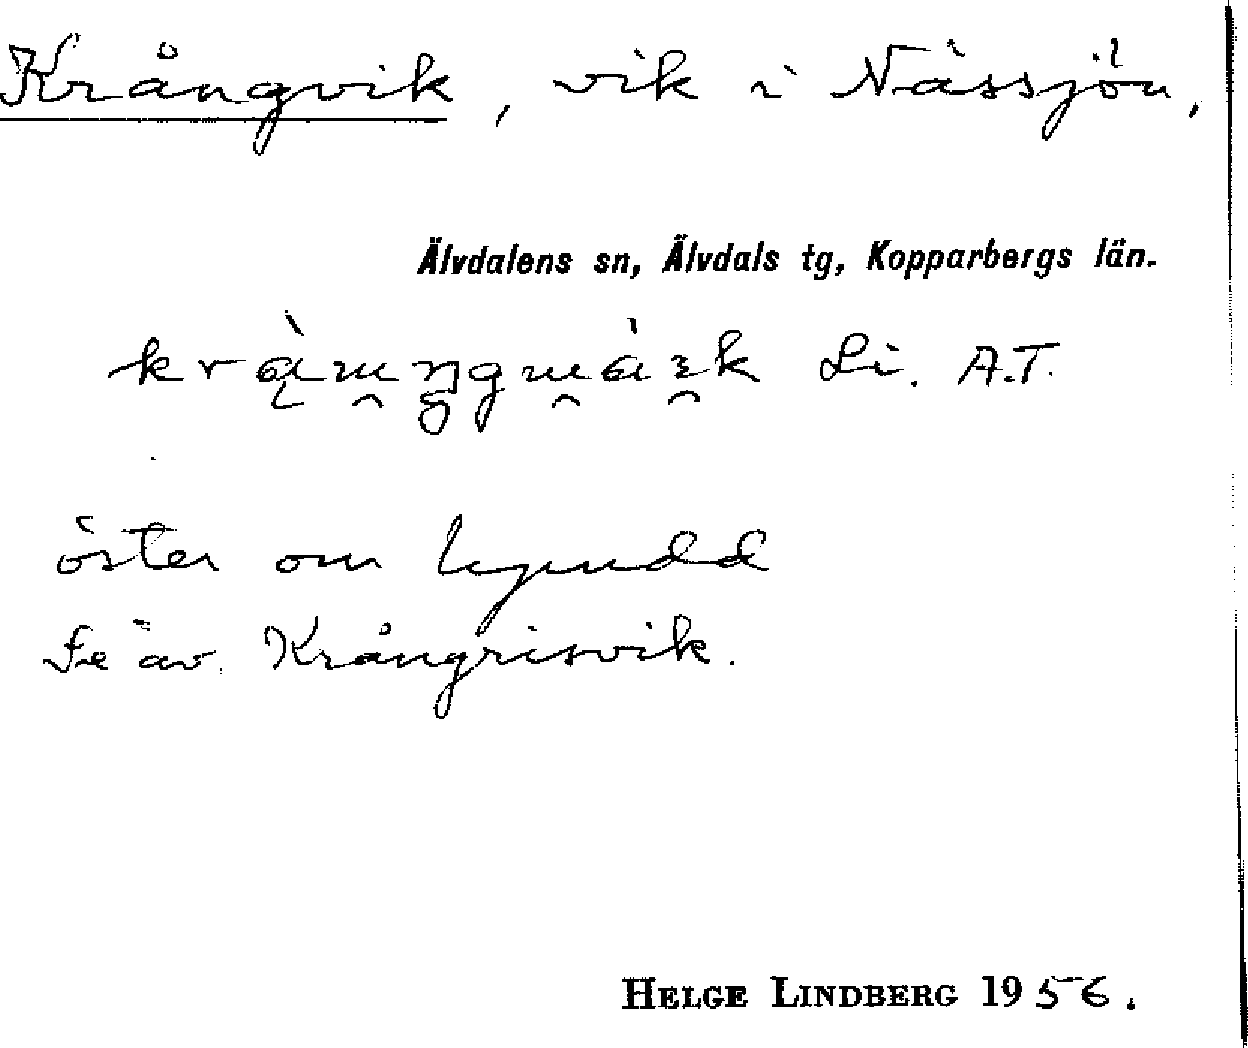 Krångvik, vik i Nässjön,
Älvdalens sn, Älvdals tg, Kopparbergs län.
Li. A.T.
öster om
Se äv. Krångrisvik.
HELGE LINDBERG 1956.